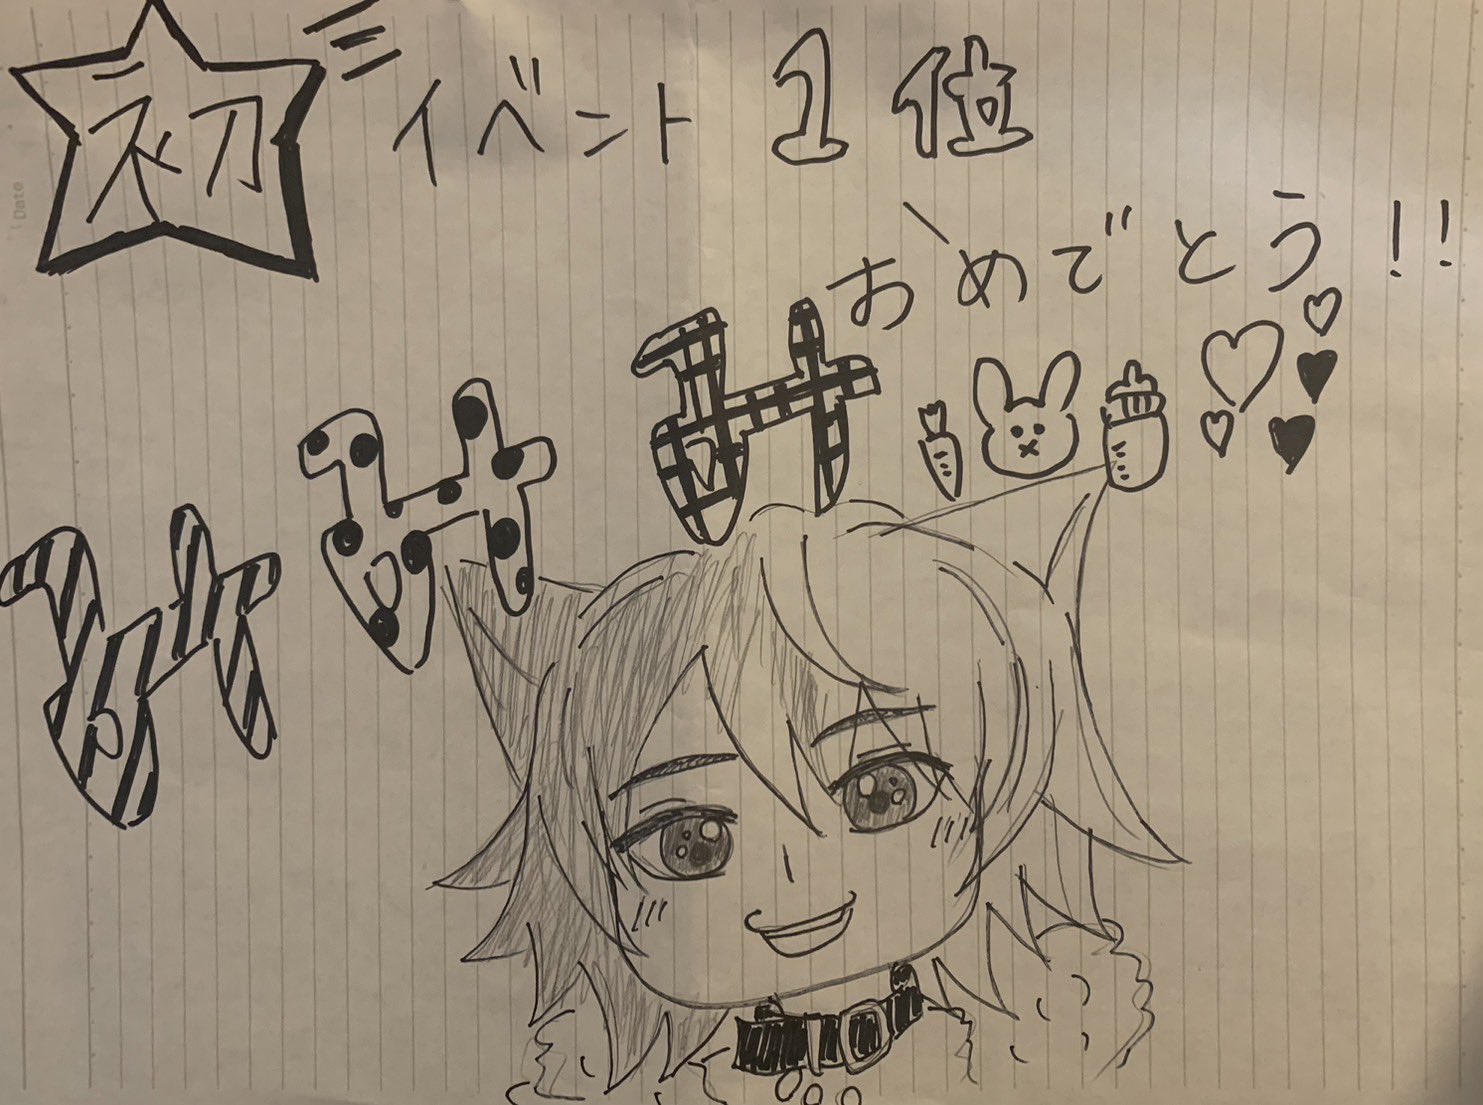 初イベント1位
おめでとう!!
みみみ
Date